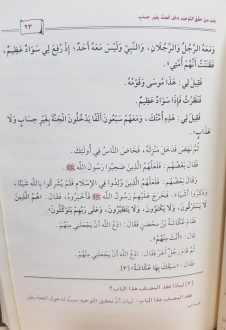 باب من حقق التوحيد دخل الجنة بغير حساب
٢٣
وَمَعَهُ الرَّجُلُ وَالرَّجُلَانِ، وَالنَّبِيَّ وَلَيْسَ مَعَهُ أَحَدٌ؛ إِذْ رُفِعَ لِي سَوَادٌ عَظِيمٌ،
فَظَنَنْتُ أَنَّهُمْ أُمَّتِي».
فَقِيلَ لِي: هَذَا مُوسَى وَقَوْمُهُ.
فَنَظَرْتُ فَإِذَا سَوَادٌ عَظِيمٌ.
فَقِيلَ لِي: هَذِهِ أُمَّتُكَ، وَمَعَهُمْ سَبْعُونَ أَلْفًا يَدْخُلُونَ الْجَنَّةَ بِغَيْرِ حِسَابٍ وَلَا
عَذَابٍ».
ثُمَّ نَهَضَ فَدَخَلَ مَنْزِلَهُ، فَخَاضَ النَّاسُ فِي أُولَئِكَ.
فَقَالَ بَعْضُهُمْ: فَلَعَلَّهُمُ الَّذِينَ صَحِبُوا رَسُولَ اللَّهِ ﷺ.
وَقَالَ بَعْضُهُمْ: فَلَعَلَّهُمُ الَّذِينَ وُلِدُوا فِي الْإِسْلَامِ فَلَمْ يُشْرِكُوا بِاللَّهِ شَيْئًا،
وَذَكَرُوا أَشْيَاءَ، فَخَرَجَ عَلَيْهِمْ رَسُولُ اللَّهِ ﷺ فَأَخْبَرُوهُ، فَقَالَ: «هُمُ الَّذِينَ
لَا يَسْتَرْقُونَ، وَلَا يَكْتَوُونَ، وَلَا يَتَطَيَّرُونَ، وَعَلَى رَبِّهِمْ يَتَوَكَّلُونَ».
فَقَامَ عُكَّاشَةُ بْنُ مِحْصَنٍ فَقَالَ: ادْعُ اللَّهَ أَنْ يَجْعَلَنِي مِنْهُمْ.
قَالَ: «أَنْتَ مِنْهُمْ».
ثُمَّ قَامَ رَجُلٌ آخَرُ فَقَالَ: ادْعُ اللَّهَ أَنْ يَجْعَلَنِي مِنْهُمْ.
فَقَالَ: «سَبَقَكَ بِهَا عُكَّاشَةُ» (٣).
[٣] لماذا عقد المصنف هذا الباب؟
عقد المصنف هذا الباب: لبيان أنَّ تحقيق التوحيد سببٌ لدخول الجنة بغير
حساب.